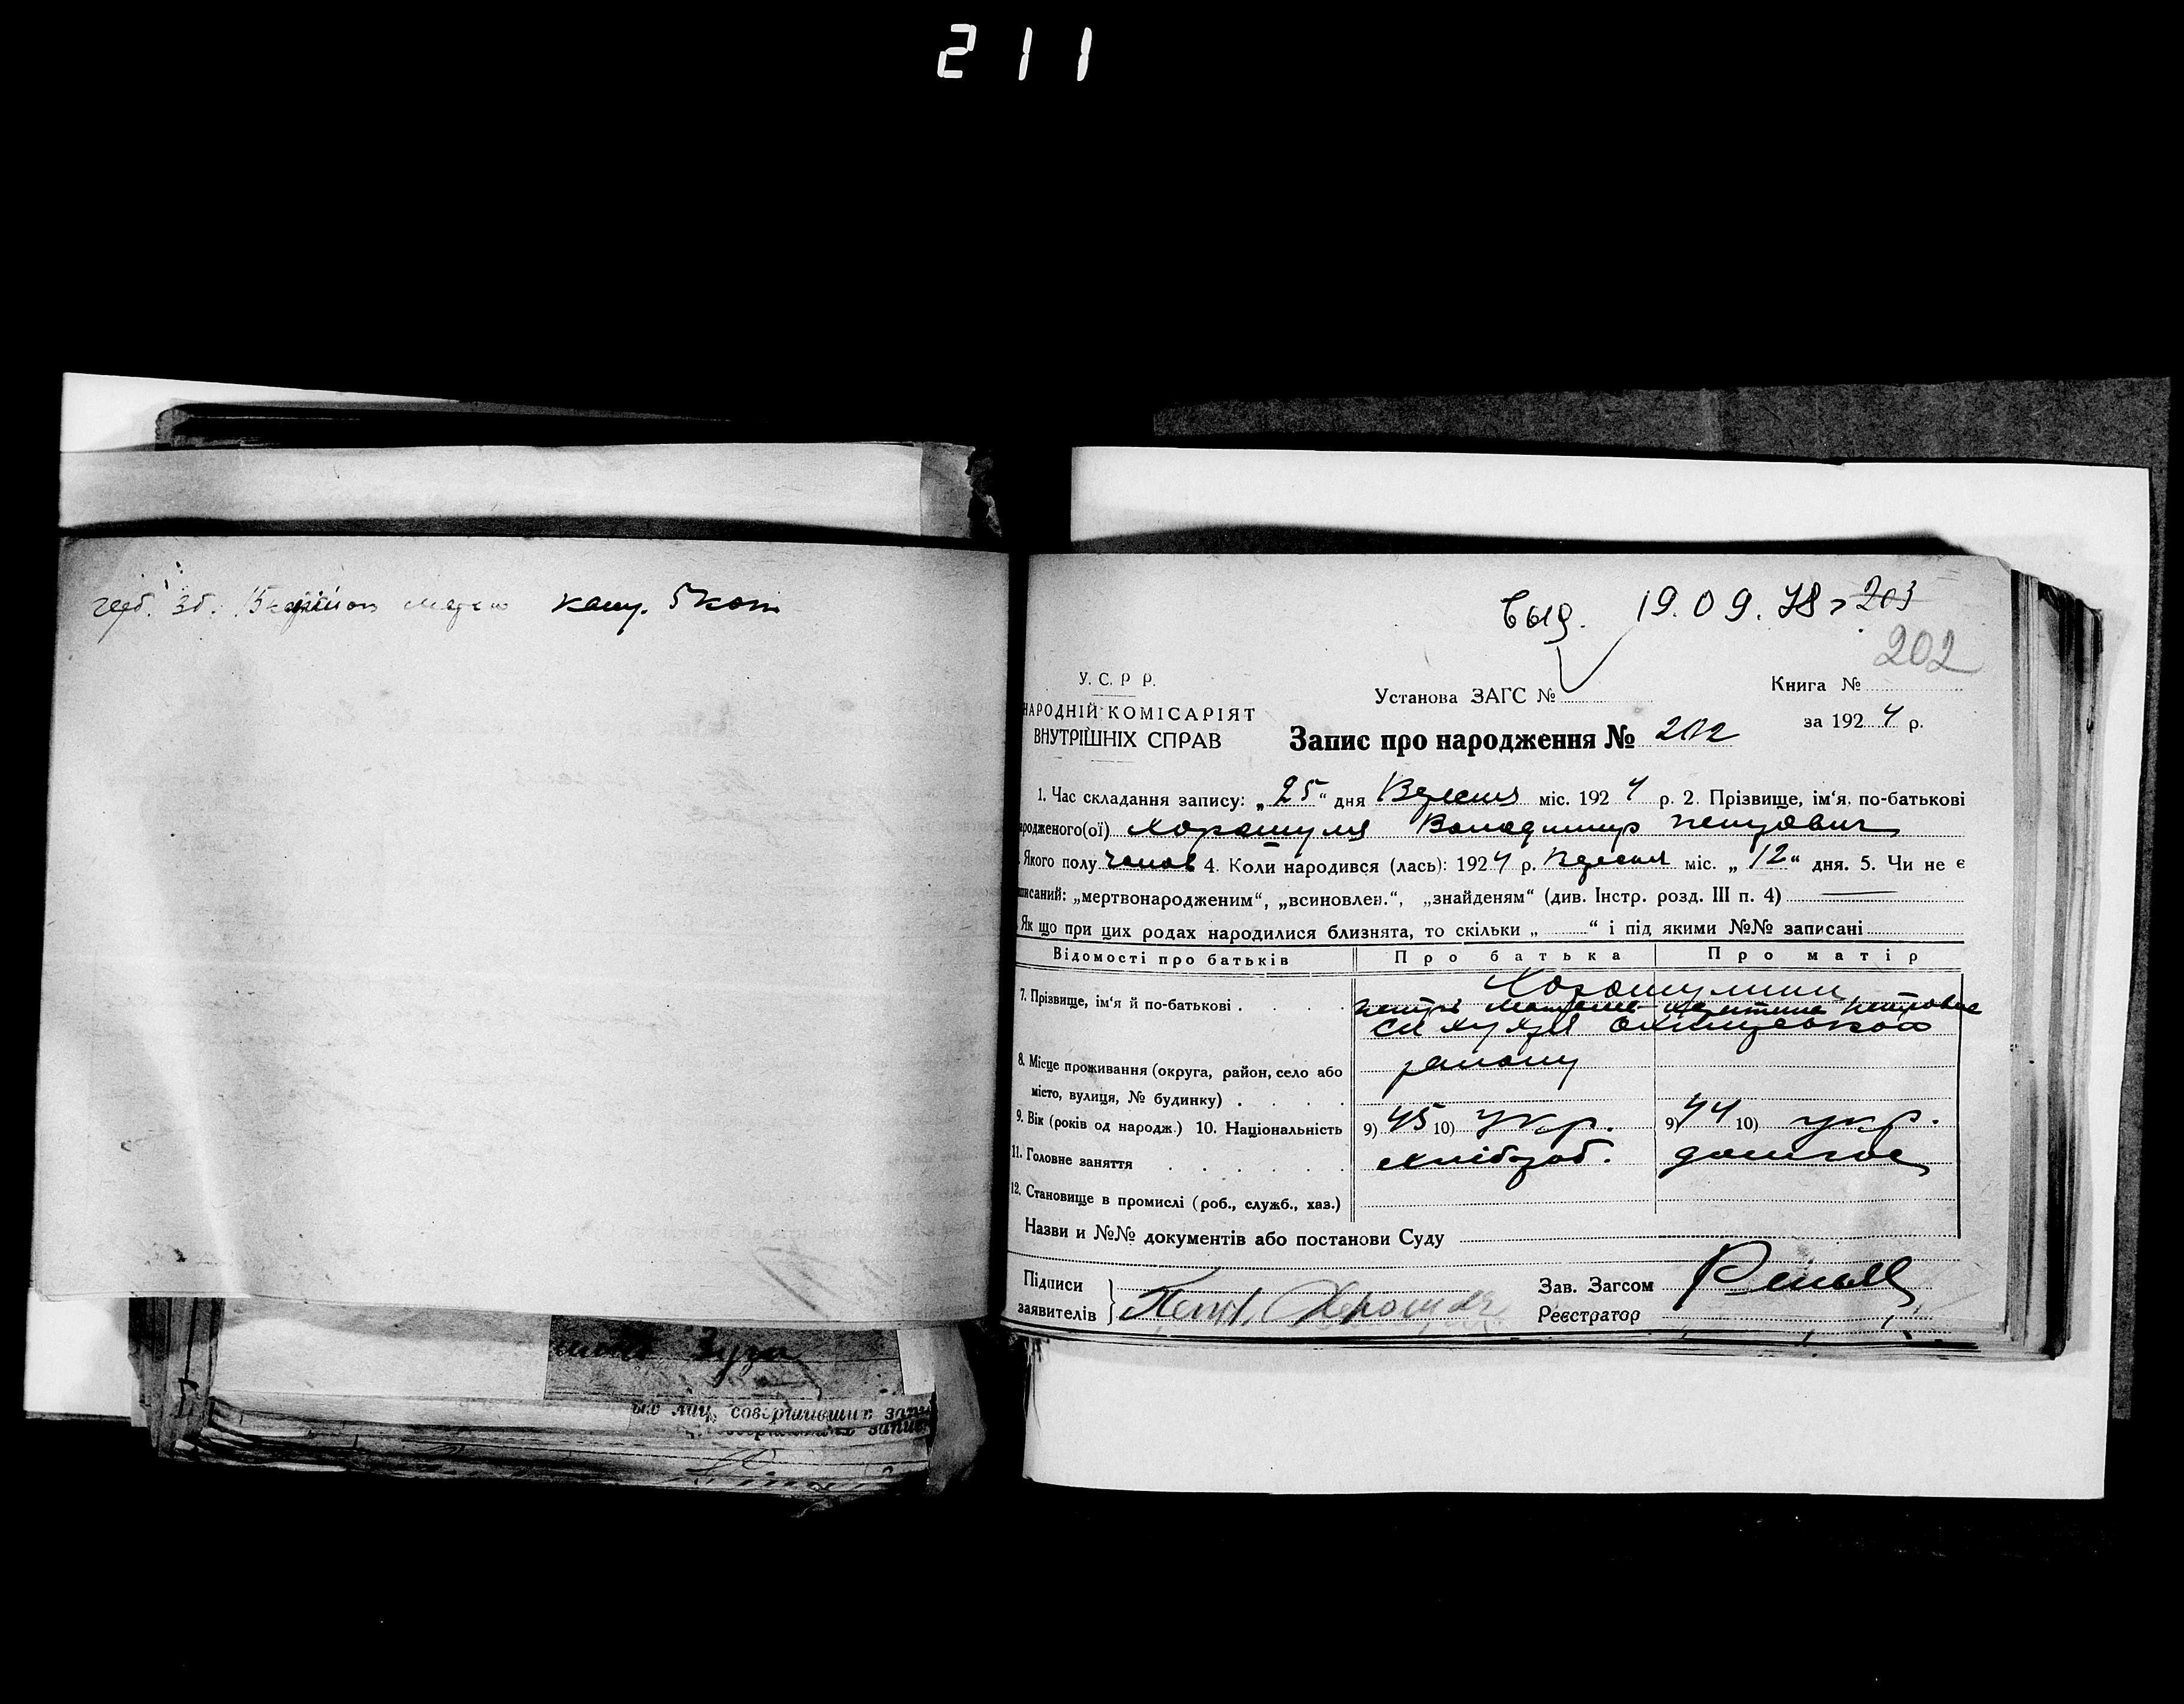 211
герб. зб. 15 канц. 5 коп
выд. 19.09.78 г 203
202
У. С. Р Р.
НАРОДНІЙ КОМІСАРІЯТ
ВНУТРІШНІХ СПРАВ
Установа ЗАГС №
Книга №
за 1924 р.
Запис про народження № 202
1. Час складання запису: „25“ дня Вересня міс. 1924 р. 2. Прізвище, ім‘я, по-батькові
ародженого(ої) Хорошуля Володимир Петрович
Якого полу чолов 4. Коли народився (лась): 1924 р. Вересня міс. „12“ дня. 5. Чи не є
писаний: „мертвонародженим“, „всиновлен.“, „знайденям“ (див. Інстр. розд. III п. 4)
Як що при цих родах народилися близнята, то скільки „ “ і під якими №№ записані
Відомості про батьків Про батька Про матір
7. Прізвище, ім‘я й по-батькові . . . .
Петро Петровна
району
8. Місце проживання (округа, район, село або
місто, вулиця, № будинку) . . . .
9. Вік (років од народж.) 10. Національність 9) 45 10) укр. 9) 44 10) укр.
11. Головне заняття . . . . . . хлібороб. домаш
12. Становище в промислі (роб., служб., хаз.)
Назви и №№ документів або постанови Суду
Підписи
заявителів
Петр Хорошуля
Зав. Загсом
Реєстратор
Зуза
лиц, совершивших запи